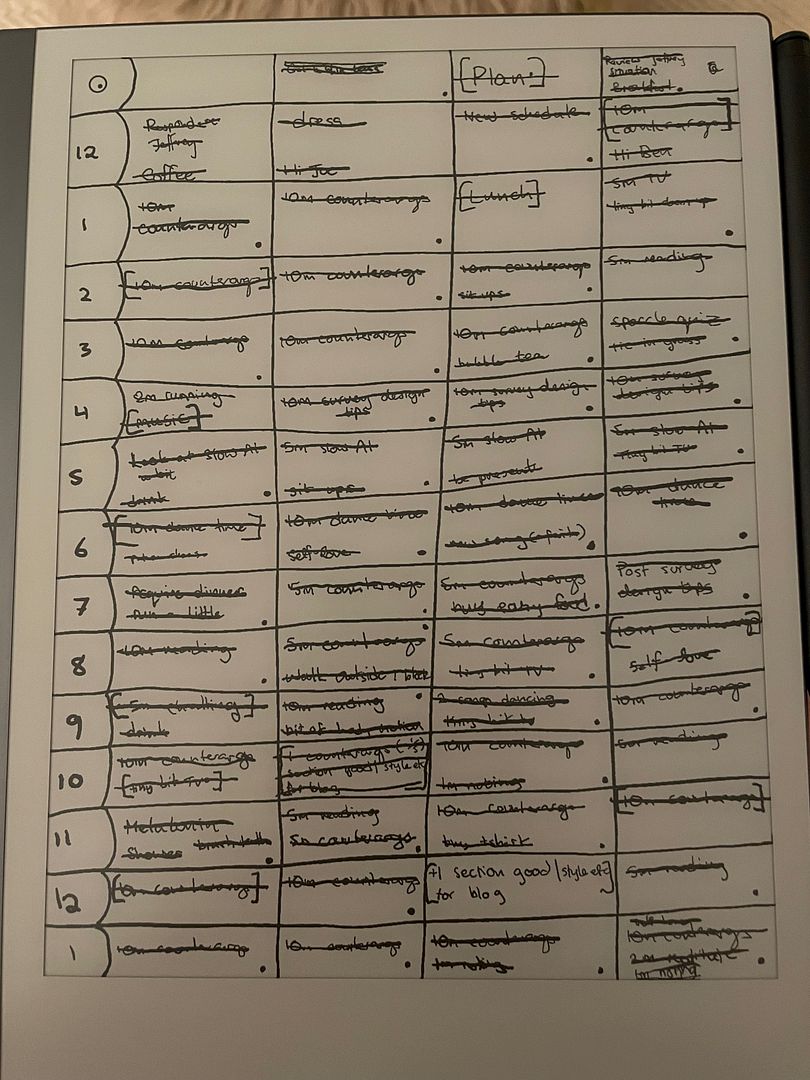 [Plan:]
Review Jeffrey
situation
Breakfast.
12
Respond to
Jeffrey
Coffee
dress
Hi Joe
New schedule
[10m
counterargs]
Hi Ben
1
10m
counterargs
10m counterargs
[Lunch]
5m TV
tiny bit
2
[10m counterargs]
10m counterargs
10m counterargs
sit ups
5m reading
3
10m counterargs
10m counterargs
10m counterargs
bubble tea
quiz
lie in grass
4
2m running
[music]
10m survey design
tips
10m survey design
tips
10m survey
design tips
5
Look at slow AI
a bit
drink
5m slow AI
sit ups
5m slow AI
be present
5m slow AI
Tiny bit TV
6
[10m dance time]
10m dance time
self love
10m dance time
new song (a fait)
10m dance
time
7
Acquire dinner
run a little
5m counterargs
5m counterargs
buy easy food
Post survey
design tips
8
10m reading
5m counterargs
walk outside 1 block
5m counterargs
tiny bit TV
[10m counterargs]
self love
9
[5m
drink
10m reading
bit of
2 songs dancing
tiny bit tv
10m counterargs
10
10m counterargs
[tiny bit TV]
[1 counterargs
section good/style etc
for blog]
10m counterargs
1m noting
5m reading
11
Melatonin
Shower brush teeth
5m reading
5m counterargs
10m counterargs
buy tshirt
[10m counterargs]
12
[10m counterargs]
10m counterargs
[+1 section good/style etc
for blog]
5m reading
1
10m counterargs
10m counterargs
10m counterargs
1m noting
10m counterargs
2m meditate
1m noting